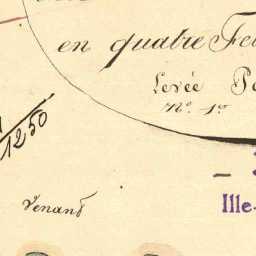 en quatre Fe
Levée Pa
N° 1°
1250
Venand
Ille-